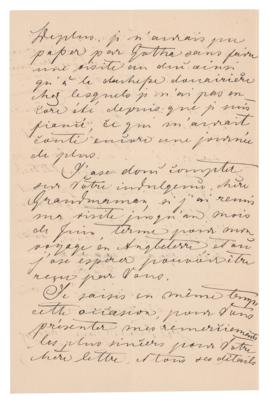 De plus, je n'aurais pu
passer par Gotha sans faire
une visite au duc ainsi
qu'à la duchesse douairière
chez lesquels je n'ai pas en-
core été depuis que je suis
fiancé, ce qui m'aurait
coûté encore une journée
de plus.
J'ose donc compter
sur Votre indulgence, chère
Grandmaman, si j'ai remis
ma visite jusqu'au mois
de Juin, terme pour mon
voyage en Angleterre et où
j'ose espérer pouvoir être
reçu par Vous.
Je saisis en même temps
cette occasion, pour Vous
présenter mes remerciements
les plus sincères pour Votre
chère lettre. Tous ses détails